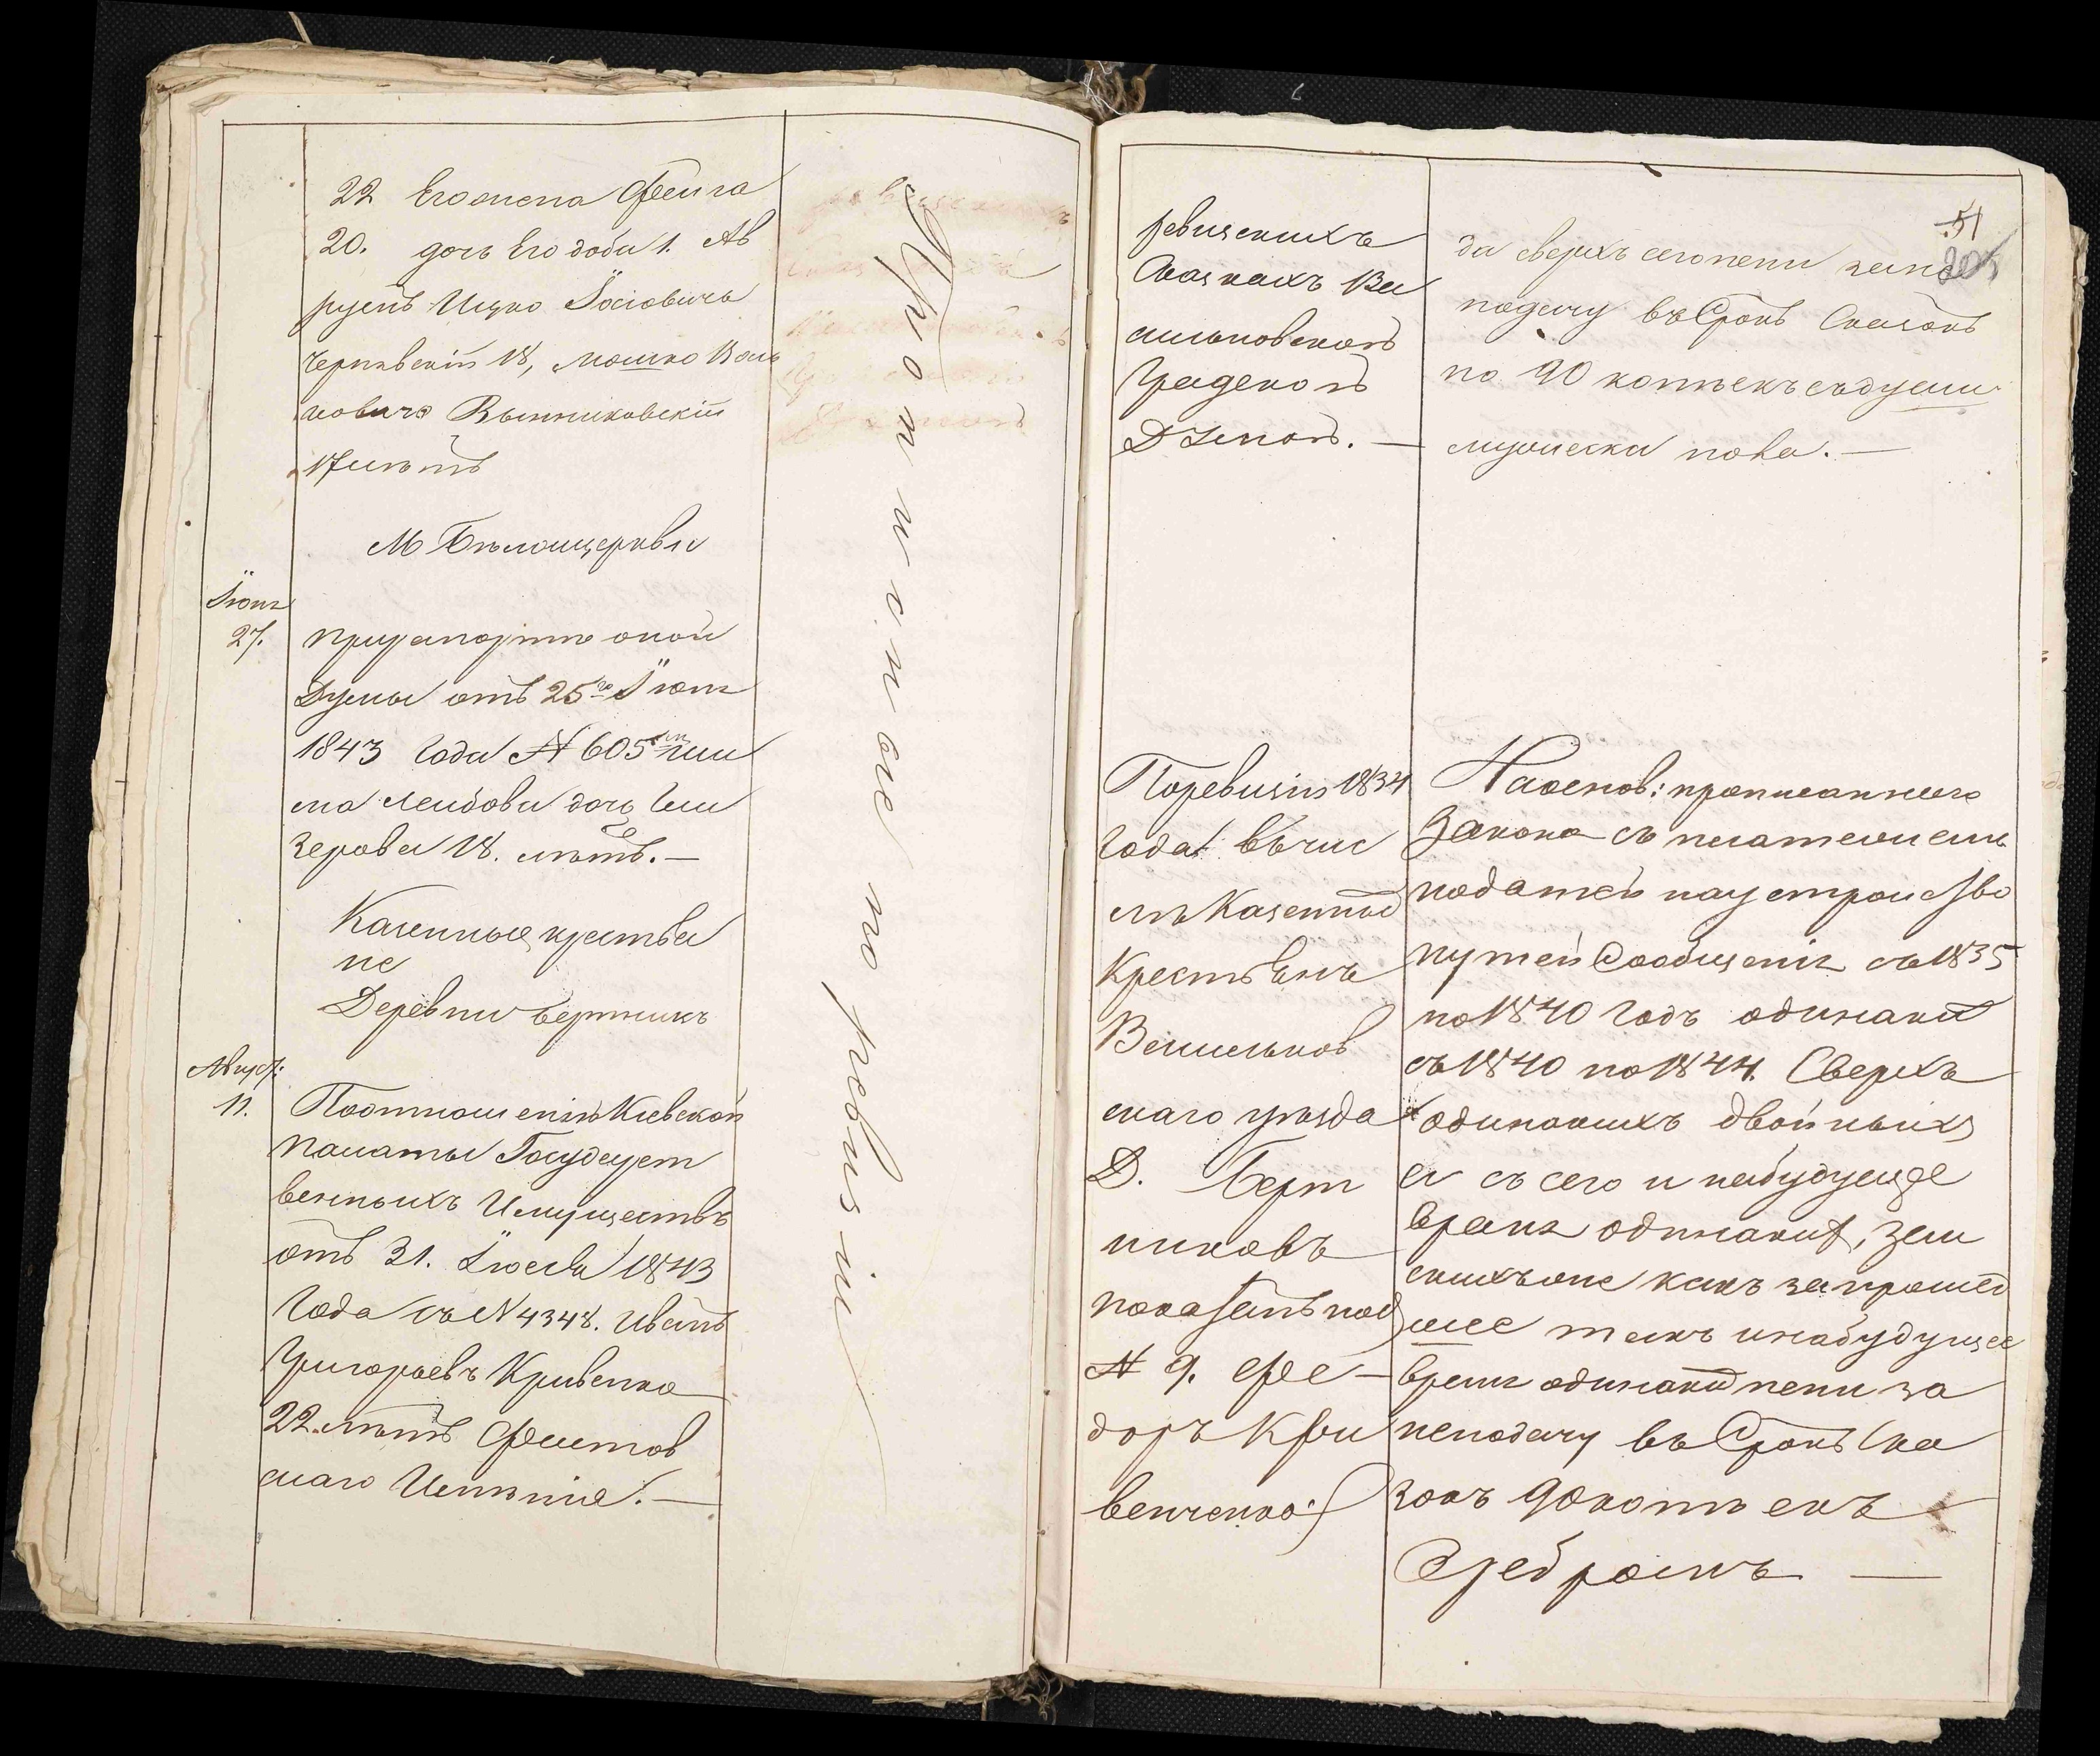 22 Его жена Фейга
20. дочь Его доба 1. Ав
румъ Ицко Іосіовичъ
Чернявскій 18, Мошко Воль
ковичъ Вынниковскій
17 лѣтъ
М Бѣлоцерквы
Іюня
27.
При рапортѣ оной
Думы отъ 25го Іюня
1843 года № 605
ма Лейбова дочь
зерова 18. лѣтъ.—
Казенные крестья
не
Деревни Бертникъ
Август:
11.
По отношенію Кіевской
Палаты Государст
венныхъ Имуществъ
отъ 31. Іюля 1843
Года съ № 4348. Иванъ
Григорьевъ Кривенко
22. лѣтъ Фастов
скаго Имѣнія.—
Пропитаніе по ревизіи
ревизскихъ
Сказкахъ Ва
сильковской
Градской
Думой.—
51
205
да сверхъ сего пени за не
подачу въ Срокъ Сказокъ
по 90 копѣекъ съ души
мужеска пола.—
По ревизіи 1834
Года въ чис
лѣ Казенныхъ
Крестьянъ
Васильков
скаго уѣзда
Д. Берт
никовъ
показанъ под
№ 9. Фе—
доръ Кри
венченко
На основ: прописаннаго
Закона съ платежемъ
податей на устройство
путей Сообщенія съ 1835
по 1840 годъ одинакій
съ 1840 по 1844. Сверхъ
одинакихъ двойныхъ
а съ сего и на будущее
время одинакія, зем
скихъ же какъ за прошед
шее такъ и на будущее
время одинакій пени за
неподачу въ Срокъ Ска
зокъ 90 копѣекъ
Серебромъ —